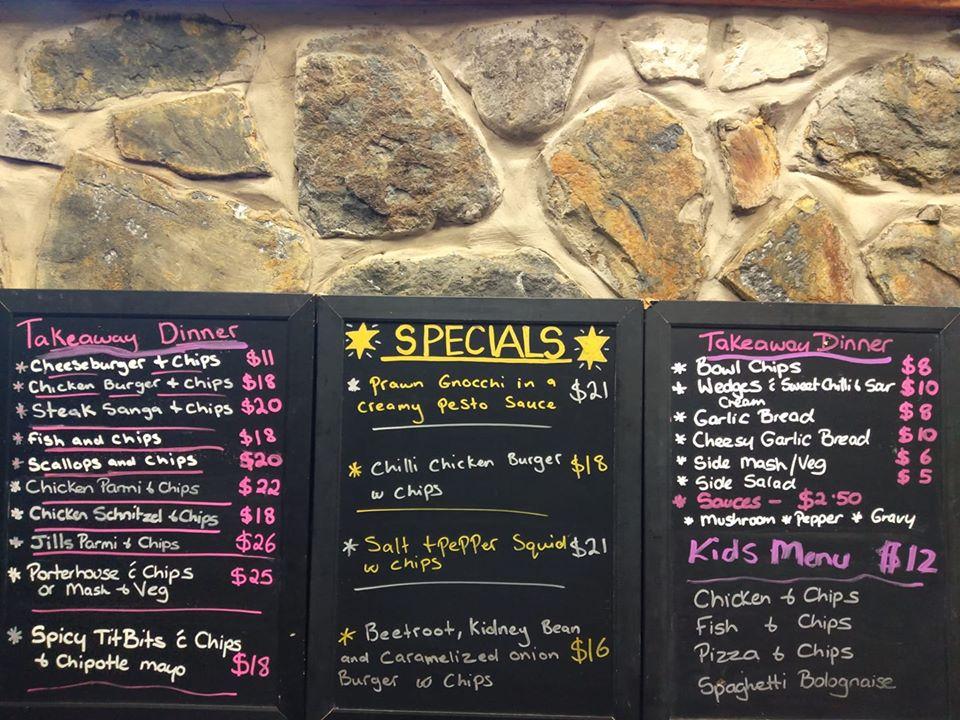 Takeaway Dinner
* Cheeseburger + Chips $11
* Chicken Burger + Chips $18
* Steak Sanga + Chips $20
* Fish and Chips $18
* Scallops and Chips $20
* Chicken Parmi & Chips $22
* Chicken Schnitzel & Chips $18
* Jills Parmi & Chips $26
* Porterhouse & Chips $25
or Mash & Veg
* Spicy TitBits & Chips
& Chipotle mayo $18
SPECIALS
* Prawn Gnocchi in a $21
creamy Pesto Sauce
* Chilli Chicken Burger $18
w chips
* Salt + Pepper Squid $21
w chips
* Beetroot, Kidney Bean
and Caramelized onion $16
Burger w Chips
Takeaway Dinner
* Bowl Chips $8
* Wedges & Sweet Chilli & Sar $10
Cream
* Garlic Bread $8
* Cheesy Garlic Bread $10
* Side Mash/Veg $6
* Side Salad $5
* Sauces - $2.50
* Mushroom * Pepper * Gravy
Kids Menu $12
Chicken & Chips
Fish & Chips
Pizza & Chips
Spaghetti Bolognaise